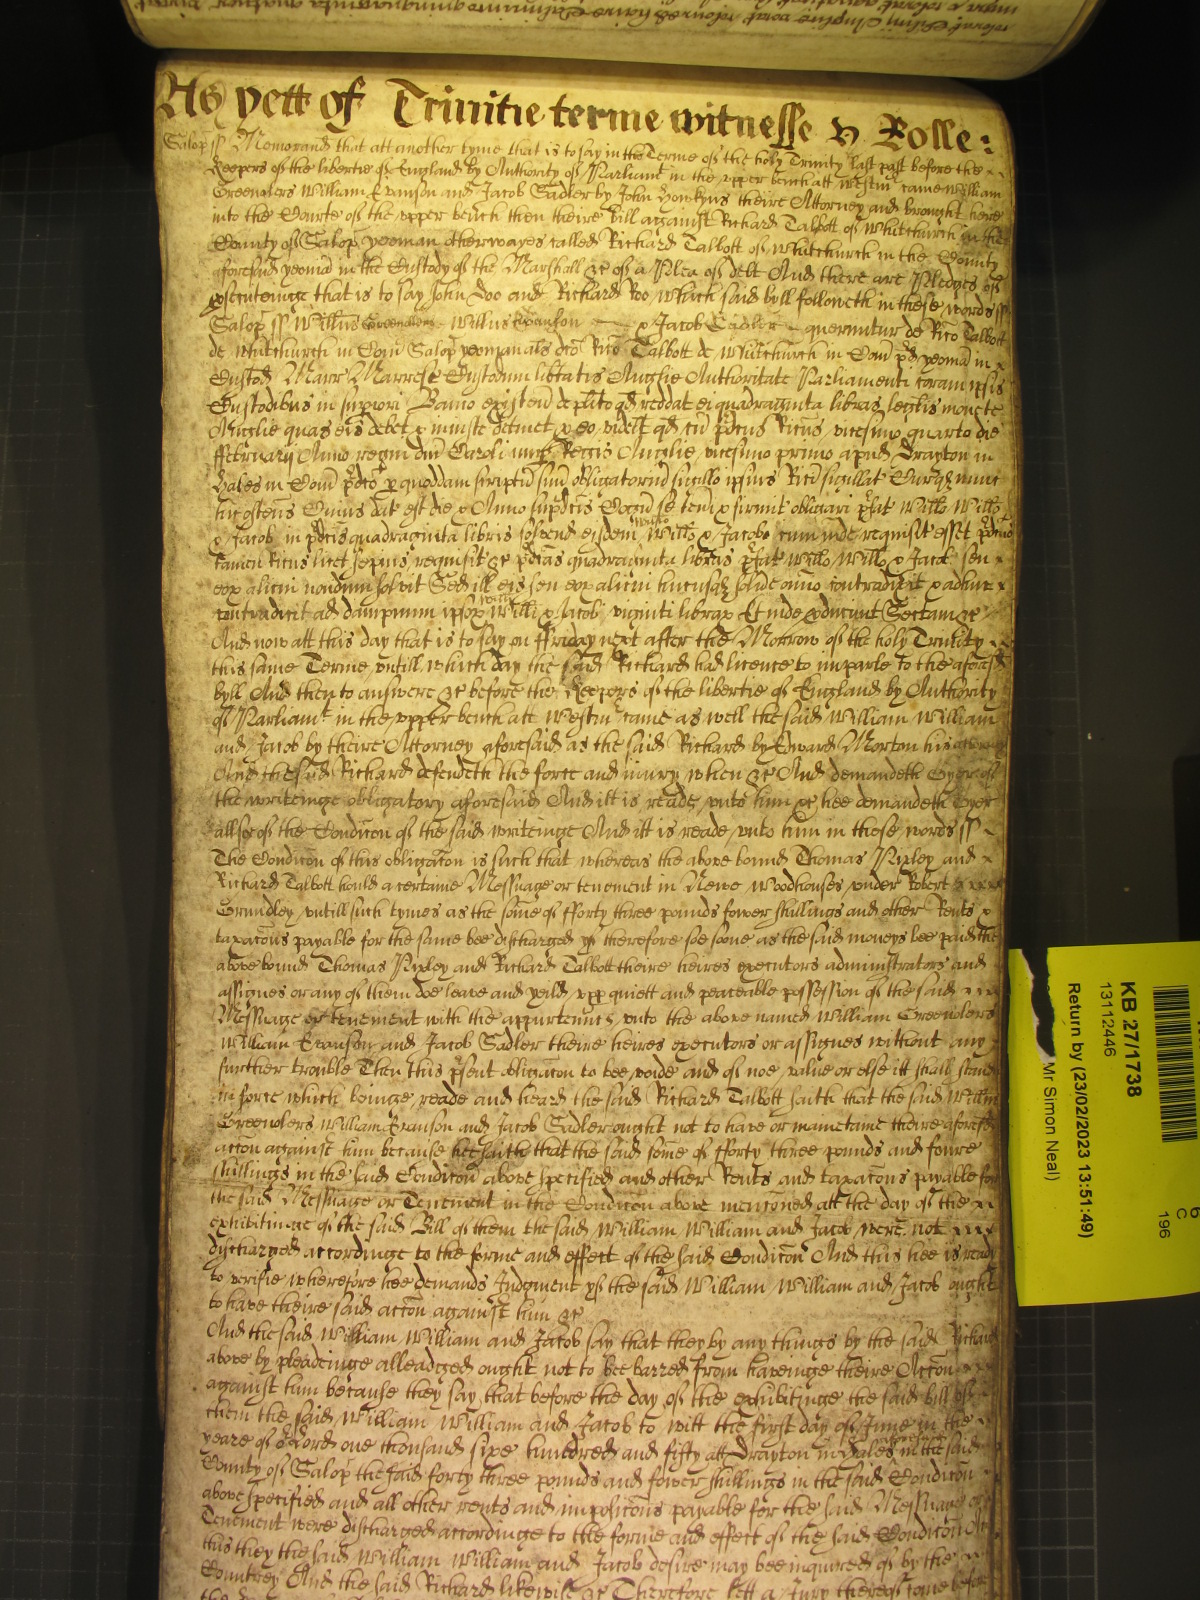 As yett of Trinitie terme witnesse v Rolle:
Salop ss Memorand that att another tyme that is to say in the Terme of the holy Trinity last past before the
Keepers of the libertie of England by Authority of Parliamt in the upper bench att Westm came William
Greenolers William Evanson and Jacob Sadler by John Howkyns theire Attorney and brought here
into the Courte of the upper bench then theire bill against Richard Talbott of Whitchurch in the
County of Salop yeoman otherwayes called Richard Talbott of Whitchurch in the County
aforesaid yeoma in the Custody of the Marshall &c of a Plea of debt And there are Pledges of
prosecuteinge that is to say John Doo and Richard Roo which said byll followeth in these words ss
Salop ss Willus Greenolers Willus Evanson & Jacob Sadler queruntur de Rico Talbott
de Whitchurch in Com Salop yeoman als dco Rico Talbott de Whitchurch in Com pd yeoma in
Custod Marr Marresc Custodum libtatis Anglie Authoritate Parliamenti coram ipsis
Custodibus in supiori Banco existen de plito qd reddat eis quadraginta libras legalis monete
Anglie quas eis debet & iniuste detinet & eo videlt qd cu pdcus Ricus vicesimo quarto die
ffebruarij Anno regni dni Caroli nup Regis Anglie vicesimo primo apud Drayton in
Hales in Com pdco p quoddam scriptu suu obligatoriu sigillo ipsius Rici sigillat Curieqz nunc
hic ostens Cuius dat est die & Anno supdcis Cogn se teneri & firmit obligari pfat Willo Willo
& Jacob in pdcis quadraginta libris solvend eisdem Willo Willo & Jacobo cum inde requisit esset pdcus
tamen Ricus licet sepius requisit &c pdcas quadraginta libras pfat Willo Willo & Jacob seu
eoz alicui nondum solvit Sed ill eis seu eoz alicui hucusqz solvere omnio contradixit & adhuc
contradicit ad dampnum ipsoz Willi Willi & Jacobi viginti libraz Et inde producunt Sectam &c
And now att this day that is to say on ffriday next after the Morrow of the holy Trinity
this same Terme untill which day the said Richard had licence to imparle to the aforesd
byll And then to answere &c before the Keepers of the libertie of England by Authority
of Parliamt in the upper bench att Westm came as well the said William William
and Jacob by theire Attorney aforesaid as the said Richard by Edward Morton his attorney
And the said Richard defendeth the force and iniury when &c And demandeth Oyer of
the writeinge obligatory aforesaid And itt is reade unto him &c hee demandeth Oyer
allsoe of the Condicon of the said writeinge And itt is reade unto him in these words ss
The Condicon of this obligacon is such that whereas the above bound Thomas Pixley and
Richard Talbott hould a certaine Messuage or tenement in Newe Woodhouses under Robert
Grundley untill such tymes as the some of fforty three pounds fower shillings and other Rents &
taxacons payable for the same bee discharged yf therefore soe soone as the said moneys bee paid the
above bound Thomas Pixley and Richard Talbott theire heires executors administrators and
assignes or any of them doe leave and yeild upp quiett and peaceable possession of the said
Messuage or tenement with the appurtennes unto the above named William Greenolers
William Evanson and Jacob Sadler theire heires executors or assignes without any
further trouble Then this psent obligacon to bee voide and of noe value or else itt shall stand
in force which beinge reade and heard the said Richard Talbott saith that the said Willm
Greenolers William Evanson and Jacob Sadler ought not to have or mainetaine theire aforesd
accon against him because hee saith that the said some of fforty three pounds and fowre
shillings in the said Condicon above specified and other Rents and taxacons payable for
the said Messuage or Tenement in the Condicon above menconed att the day of the
exhibitinge of the said Bill of them the said William William and Jacob were not
discharged accordinge to the forme and effect of the said Condicon And this hee is ready
to verifie wherefore hee demands Judgment yf the said William William and Jacob ought
to have theire said accon against him &c
And the said William William and Jacob say that they by any things by the said Richard
above by pleadeinge alleadged ought not to bee barred from haveinge theire Accon
against him because they say that before the day of the exhibitinge the said bill of
them the said William William and Jacob to witt the first day of June in the
yeare of or Lord one thousand sixe hundred and fifty att Drayton in Hales in the said
County of Salop the said forty three pounds and fower shillings in the said Condicon
above specified and all other rents and imposicons payable for the said Messuage or
Tenement were discharged accordinge to the forme and effect of the said Condicon And
this they the said William William and Jacob desire may bee inquired of by the
Countrey And the said Richard likewise &c Therefore lett a Jury thereof come before
KB 27/1738
13112446
Return by (23/02/2023 13:51:49)
Mr Simon Neal)
6
C
196